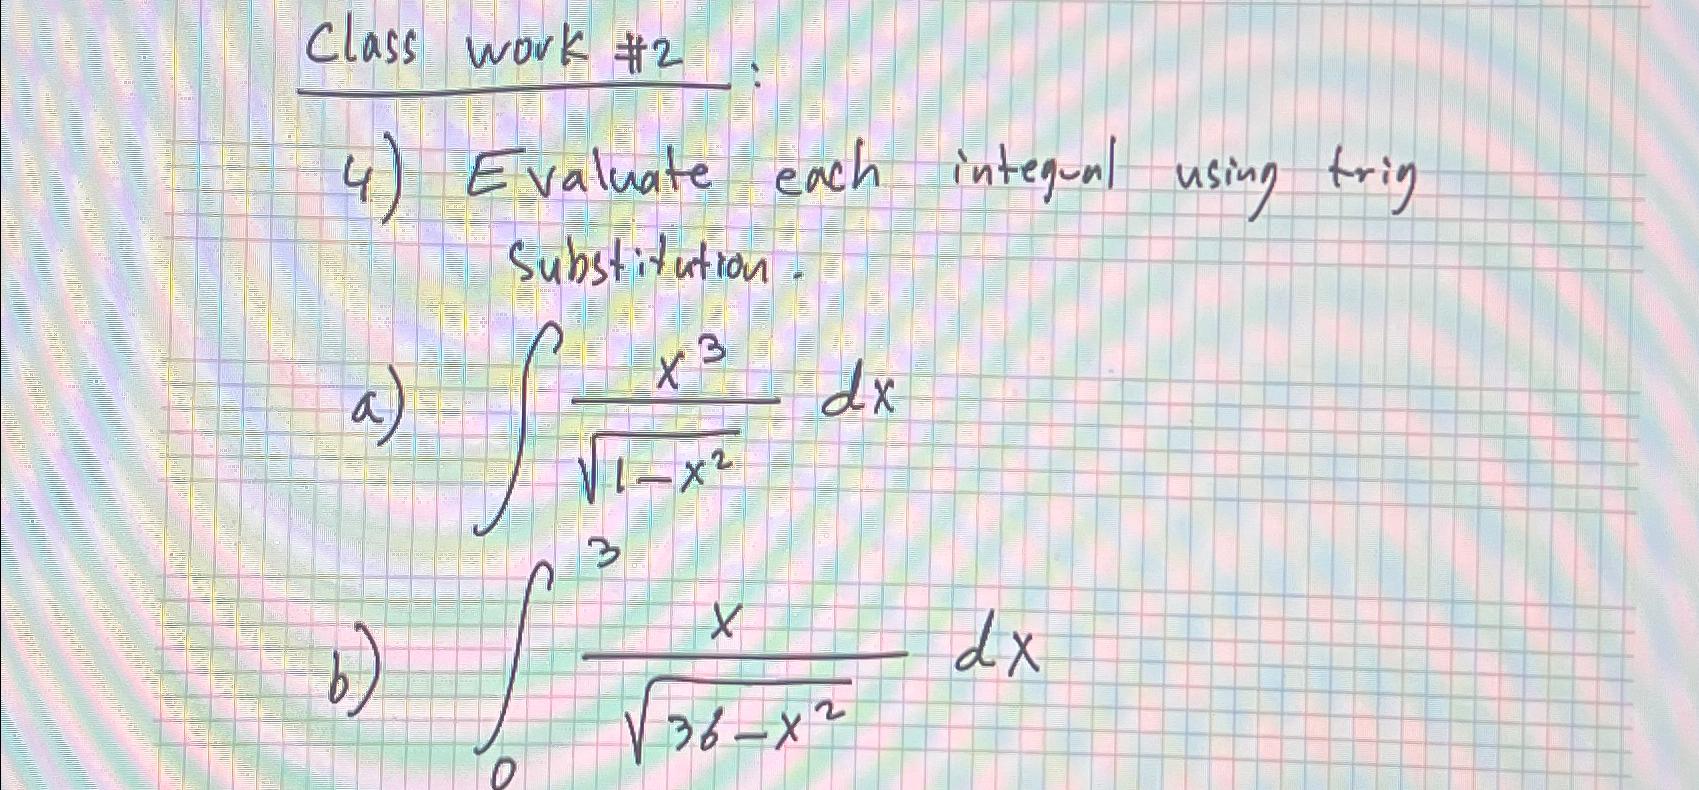 Class work #2 :
4) Evaluate each integral using trig
substitution.
a) ∫ x³/√(1-x²) dx
b) ∫₀³ x/√(36-x²) dx